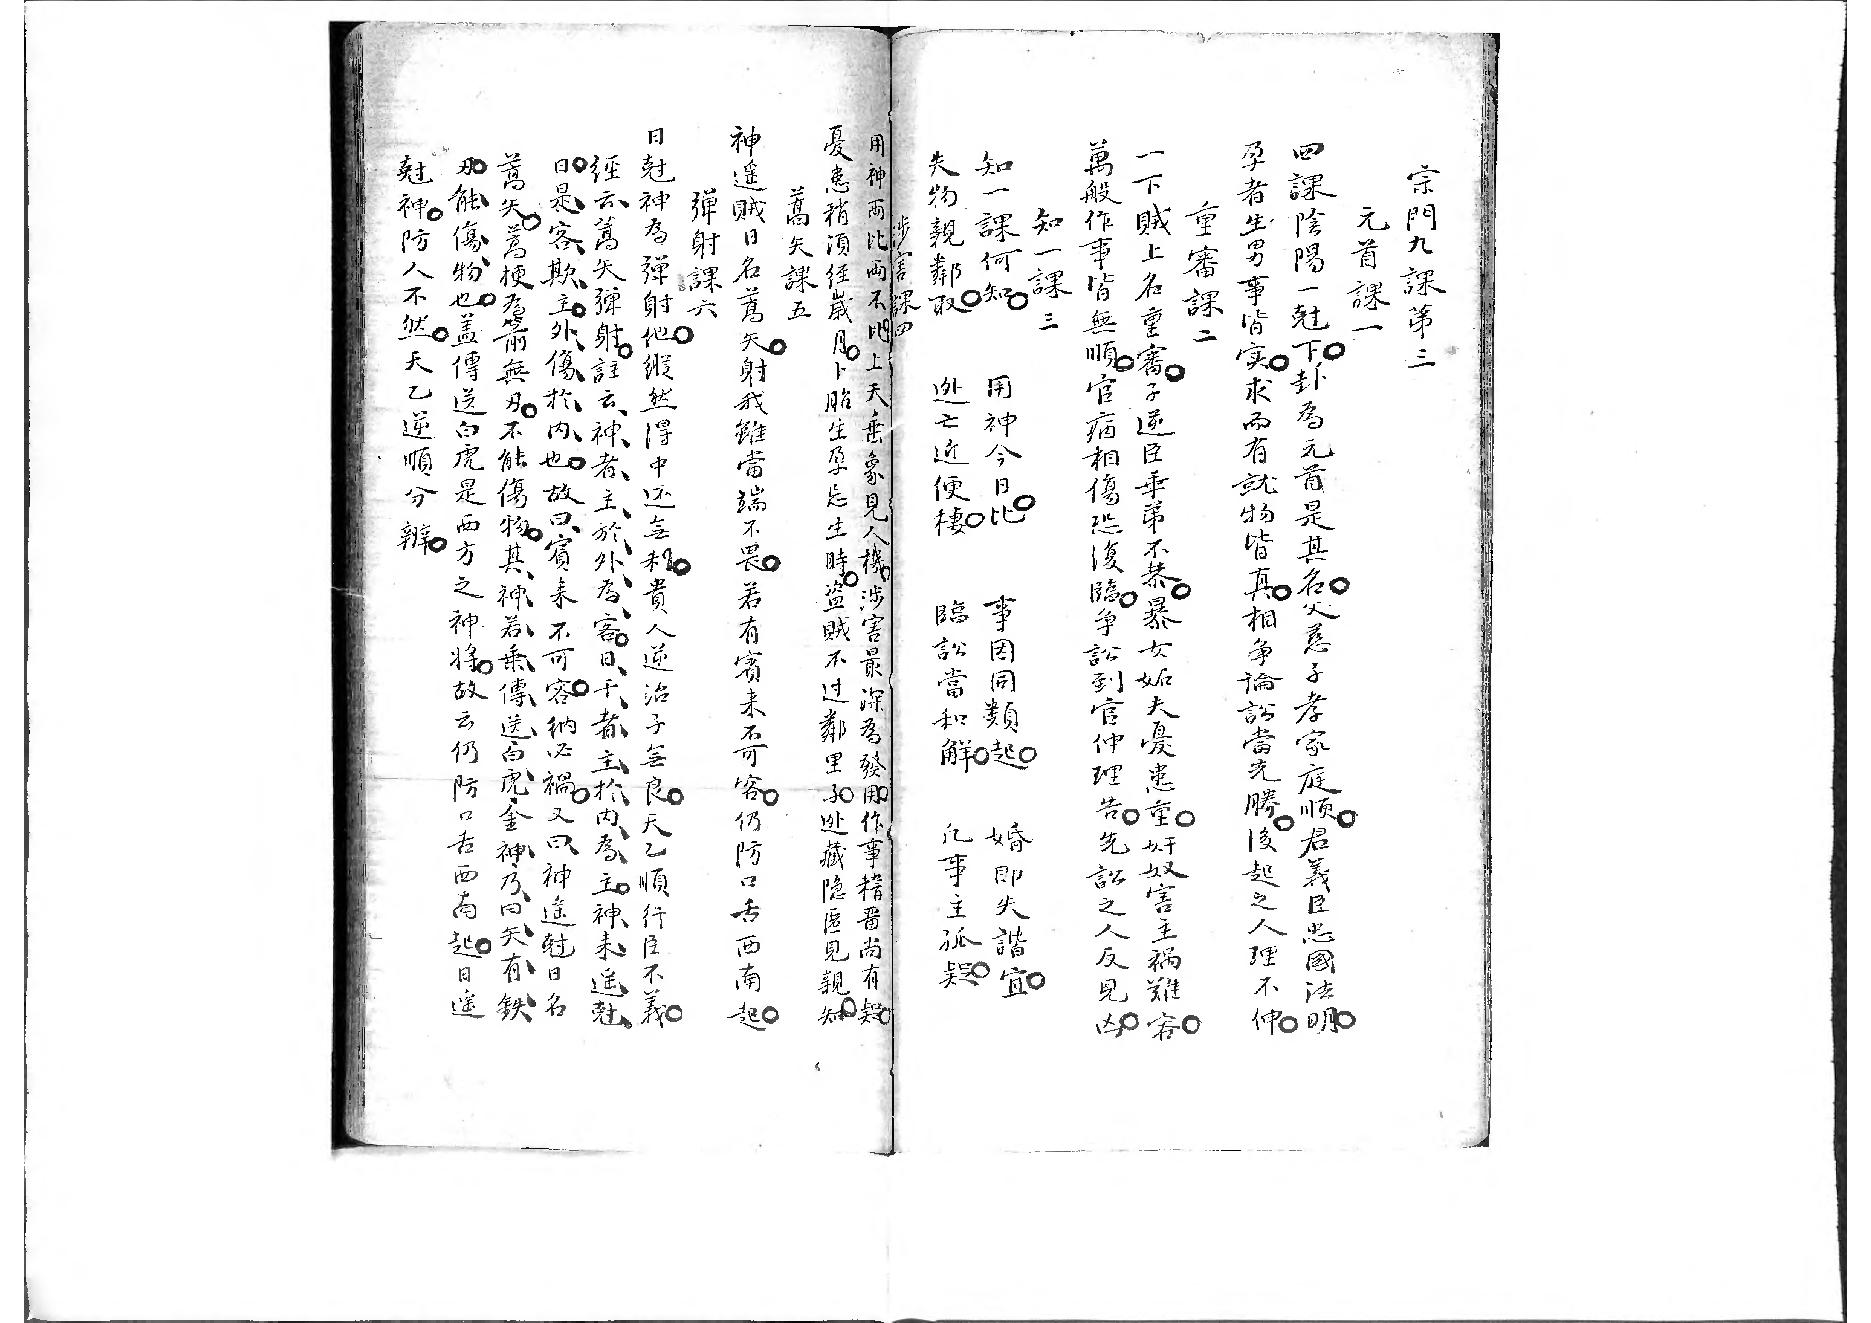 宗門九課第三
元首課一
四課陰陽一尅下。卦為元首是其名。父慈子孝家庭順。君義臣忠國法明。
孕者生男事皆实。求而有就物皆真。相爭論訟當先勝。後起之人理不伸。
重審課二
一下賊上名重審。子逆臣乖弟不恭。暴女妬夫憂患重。奸奴害主禍難容。
萬般作事皆無順。官病相傷恐復臨。爭訟到官伸理告。先訟之人反見凶。
知一課三
知一課何知。用神今日比。事因同類起。婚即失諧宜。
失物親鄰取。逃亡近便棲。臨訟當和解。凡事主狐疑。
涉害課四
用神兩比兩不比。上天垂象見人機。涉害最深為發用。作事稽留尚有疑。
憂患稍須經歲月。卜胎生孕忌生時。盜賊不过鄰里子。逃藏隐匿見親知。
蒿矢課五
神遥賊日名蒿矢。射我雖當端不畏。若有賓来不可容。仍防口舌西南起。
彈射課六
日尅神為彈射他。縱然得中还無利。貴人逆治子無良。天乙順行臣不義。
經云、蒿矢彈射。註云、神者、主於外、為客。日干者、主於内、為主。神来遥尅
日。是客欺主。外傷於内也。故曰、賓来不可容納必禍。又曰、神遙尅日名
蒿矢。蒿梗為箭無刃。不能傷物。其神若乗傳送白虎、金神、乃曰矢有鉄
刃。能傷物也。盖傳送白虎是西方之神将。故云仍防口舌西南起。日遥
尅神。防人不然。天乙逆順分辨。